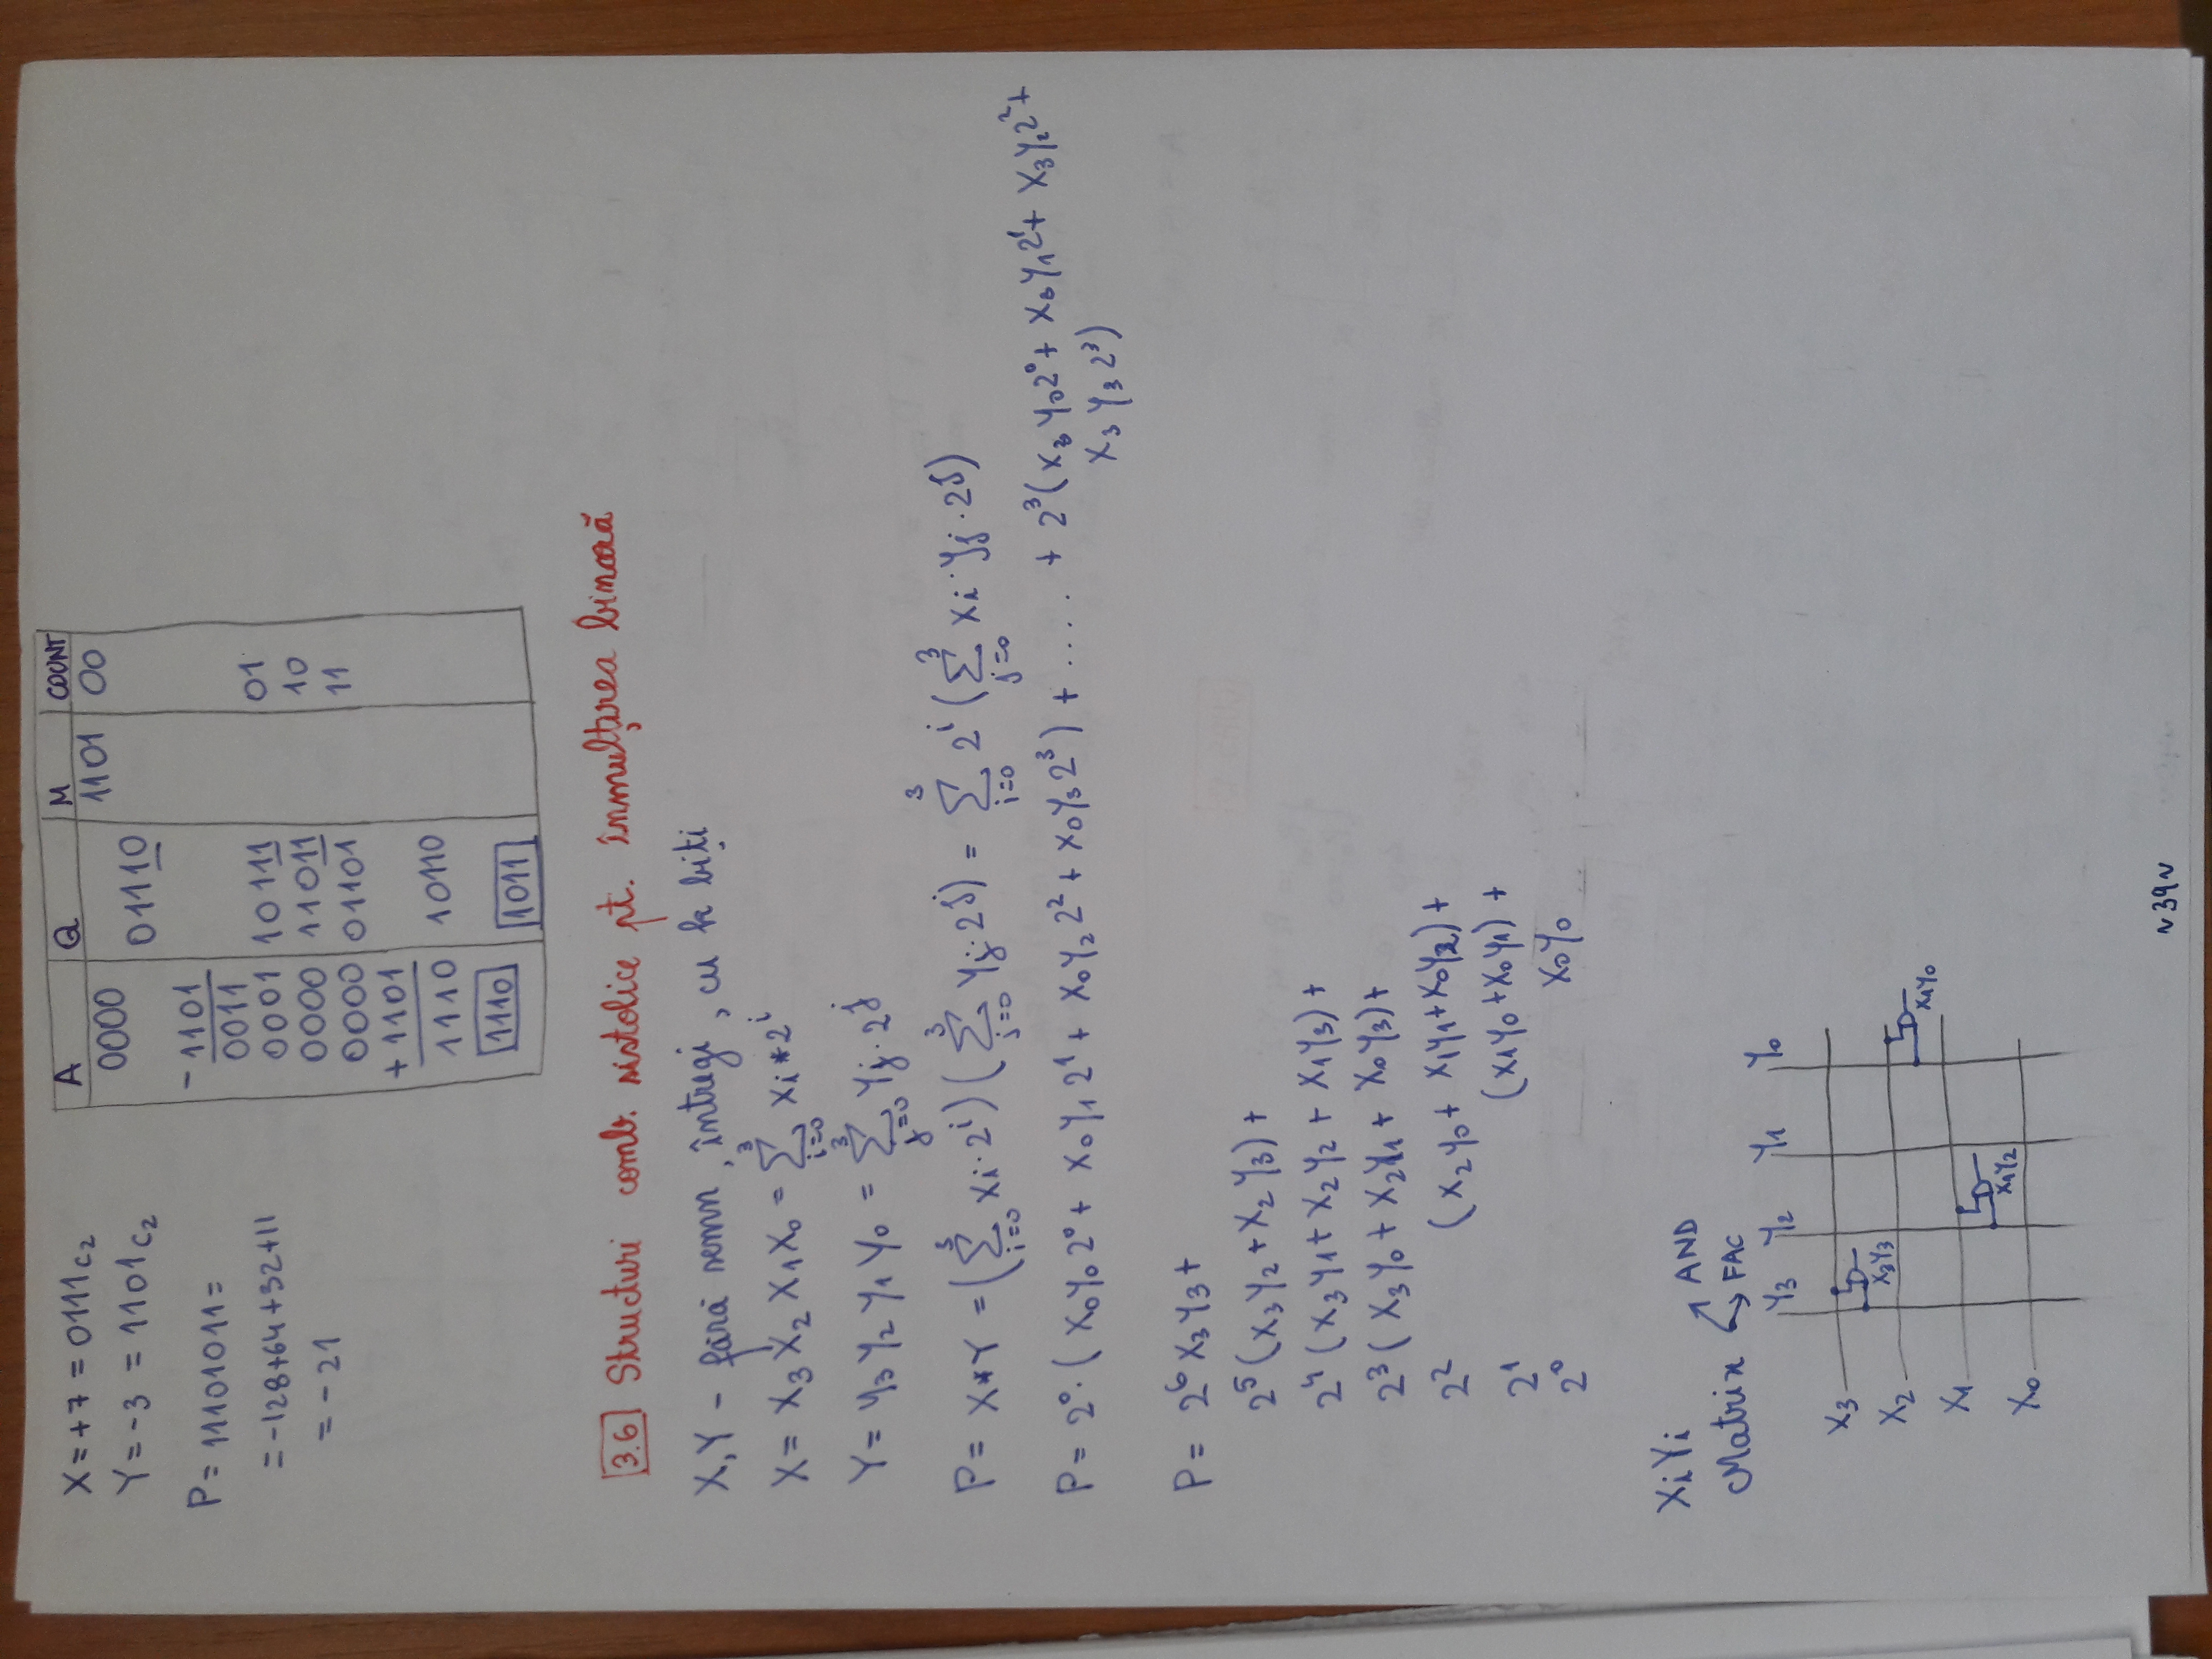 X = +7 = 0111c₂
Y = -3 = 1101c₂
P = 11101011 =
= -128+64+32+11
= -21
A Q M COUNT
0000 1101 00
01110
-1101
0011
0001 10111 01
0000 11011 10
0000 01101 11
+1101
1110 10110
1110 1011
3.6 Structuri comb. sistolice pt. înmulțirea binară
X,Y - fără semn, întregi, cu k biți
X = X₃ X₂ X₁ X₀ = ∑_{i=0}^{3} Xi * 2^i
Y = Y₃ Y₂ Y₁ Y₀ = ∑_{j=0}^{3} Yj · 2^j
P = X*Y = (∑_{i=0}^{3} Xi · 2^i) (∑_{j=0}^{3} Yj · 2^j) = ∑_{i=0}^{3} 2^i (∑_{j=0}^{3} Xi · Yj · 2^j)
P = 2⁰ · (X₀Y₀2⁰ + X₀Y₁2¹ + X₀Y₂2² + X₀Y₃2³) + ..... + 2³(X₃Y₀2⁰ + X₃Y₁2¹ + X₃Y₂2² +
X₃Y₃2³)
P = 2⁶ X₃Y₃ +
2⁵ (X₃Y₂ + X₂Y₃) +
2⁴ (X₃Y₁ + X₂Y₂ + X₁Y₃) +
2³ (X₃Y₀ + X₂Y₁ + X₀Y₃) +
2² (X₂Y₀ + X₁Y₁ + X₀Y₂) +
2¹ (X₁Y₀ + X₀Y₁) +
2⁰ X₀Y₀
XiYi
AND
Matrix
FAC
Y₃ Y₂ Y₁ Y₀
X₃
X₃Y₃
X₂
X₁Y₀
X₁
X₁Y₂
X₀
~39~